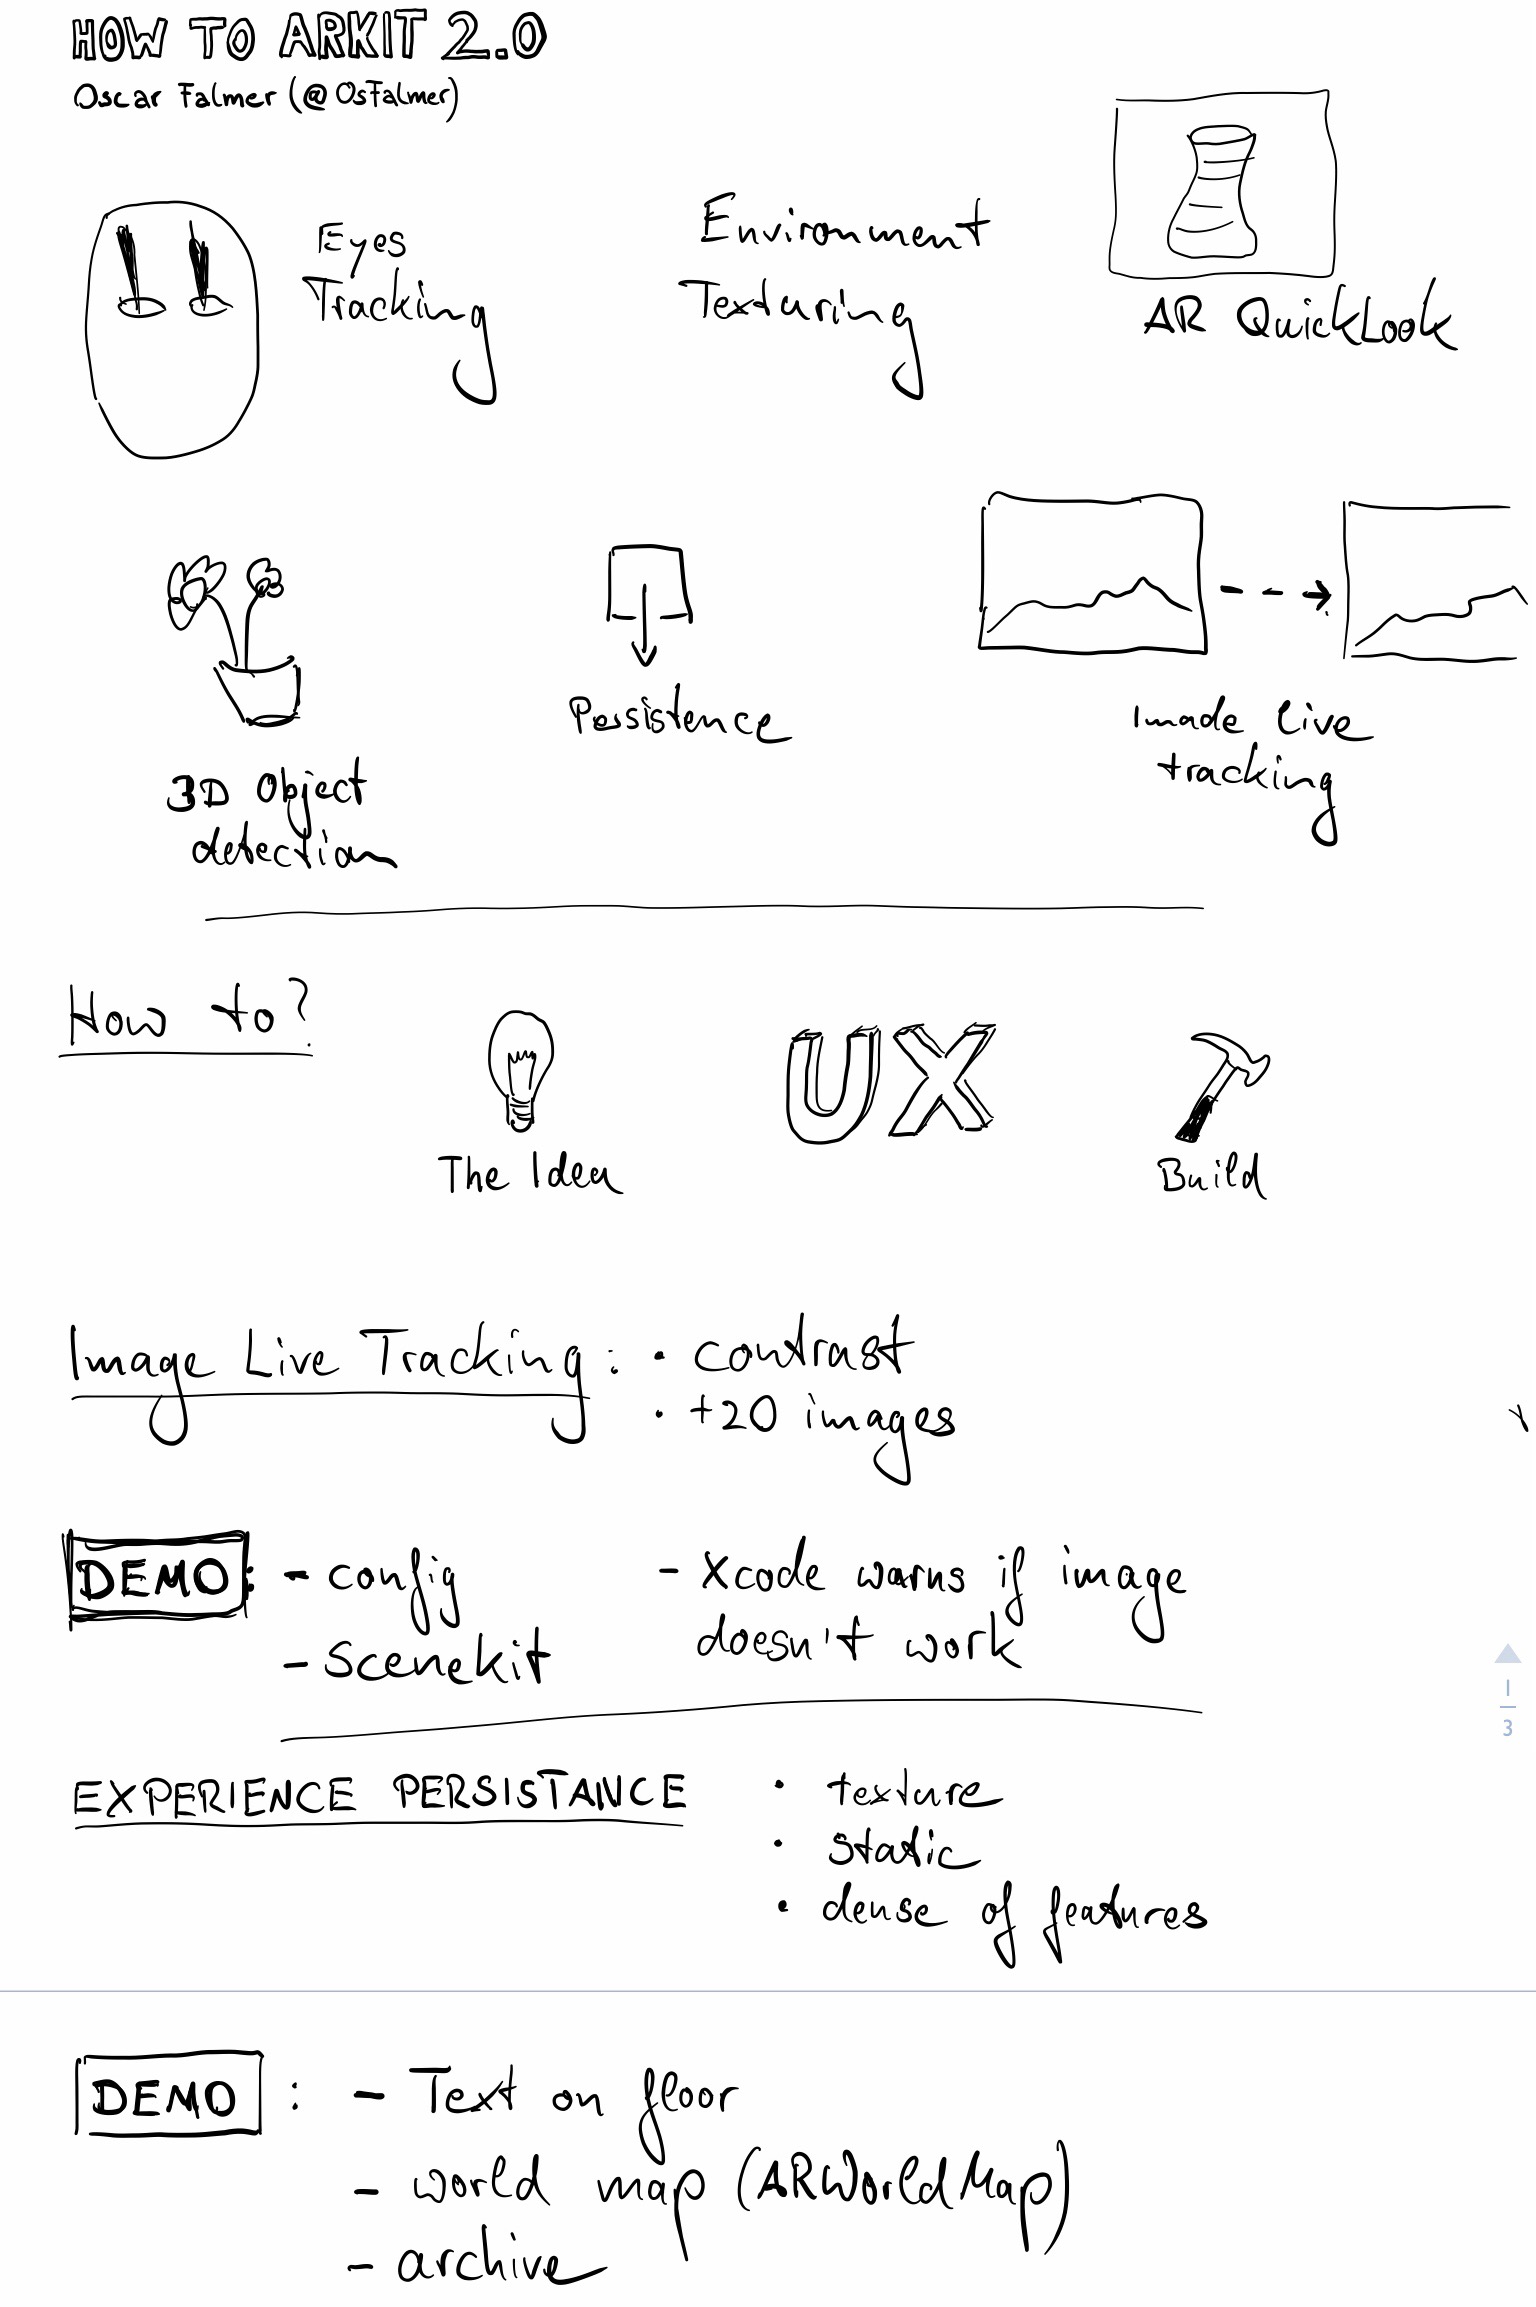 HOW TO ARKIT 2.0
Oscar Falmer (@OsFalmer)
Eyes
Tracking
Environment
Texturing
AR QuickLook
3D Object
detection
Persistence
Imade live
tracking
How to?
The Idea
UX
Build
Image Live Tracking : • contrast
• +20 images
DEMO: - config
- Scenekit
- Xcode warns if image
doesn't work
EXPERIENCE PERSISTANCE
• texture
• static
• dense of features
1
3
DEMO : - Text on floor
- world map (ARWorldMap)
- archive